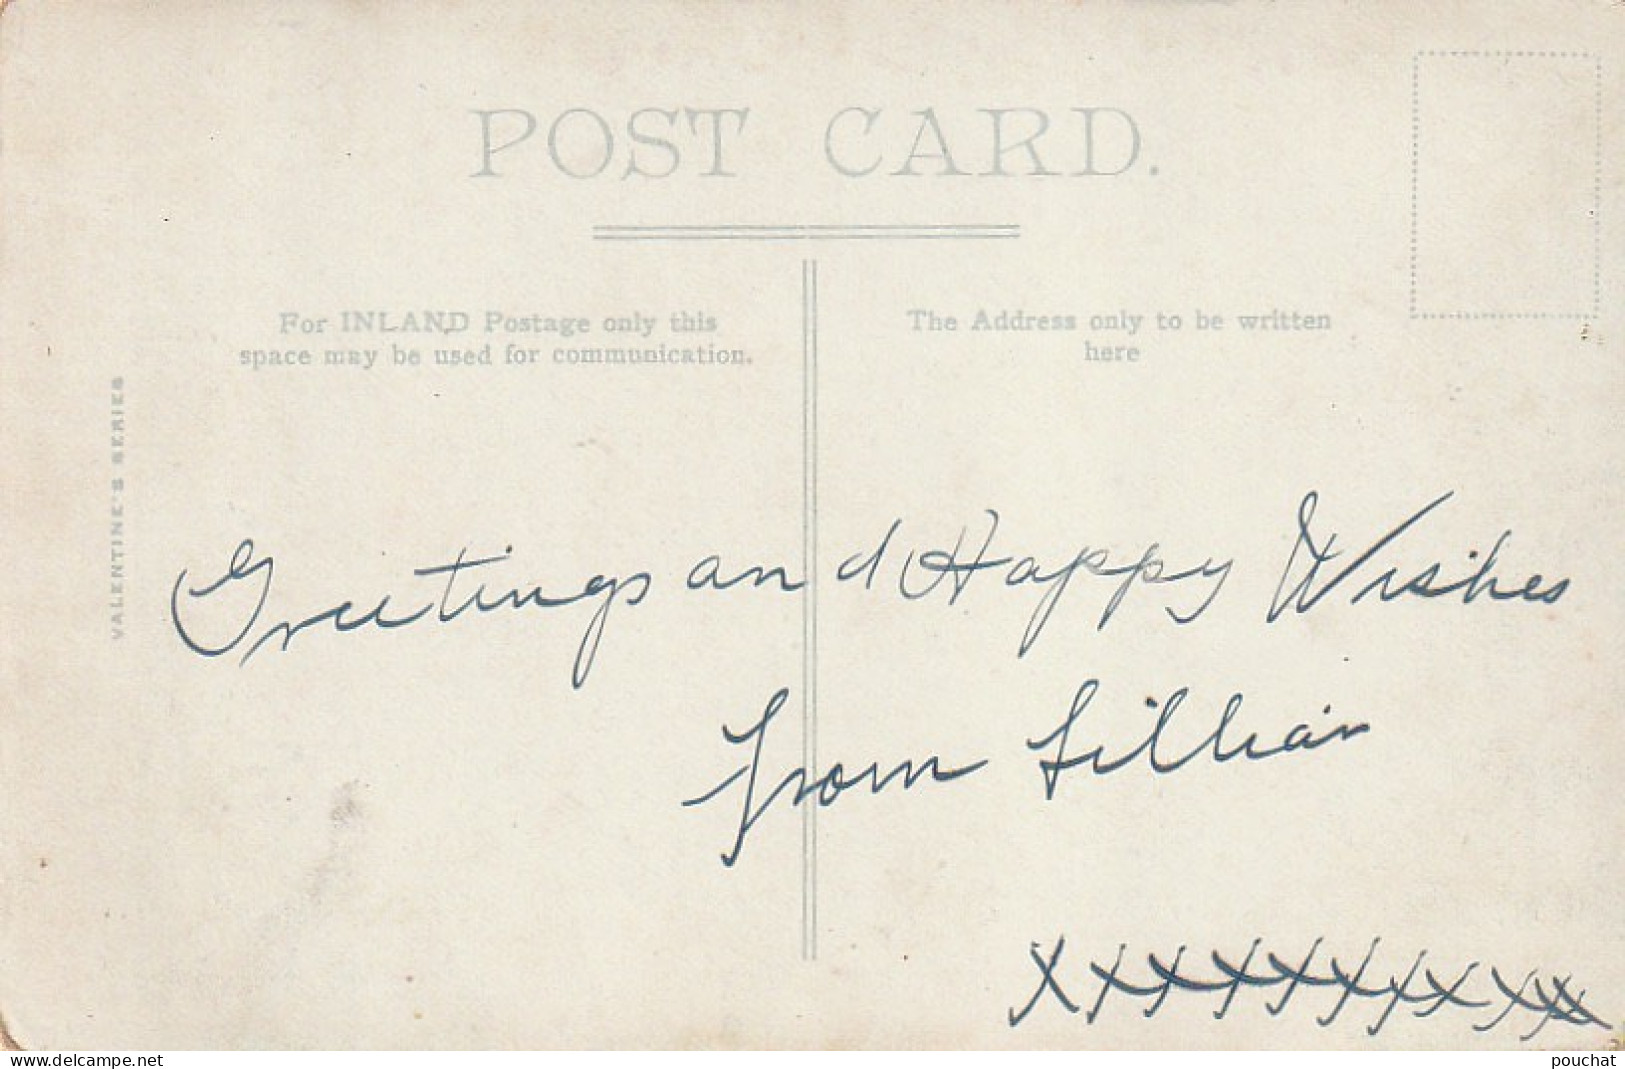 POST CARD.
For INLAND Postage only this
space may be used for communication.
The Address only to be written
here
VALENTINE'S SERIES
Greetings and Happy Wishes
from Lillian
xxxxxxxxxxx
www.delcampe.net
pouchat